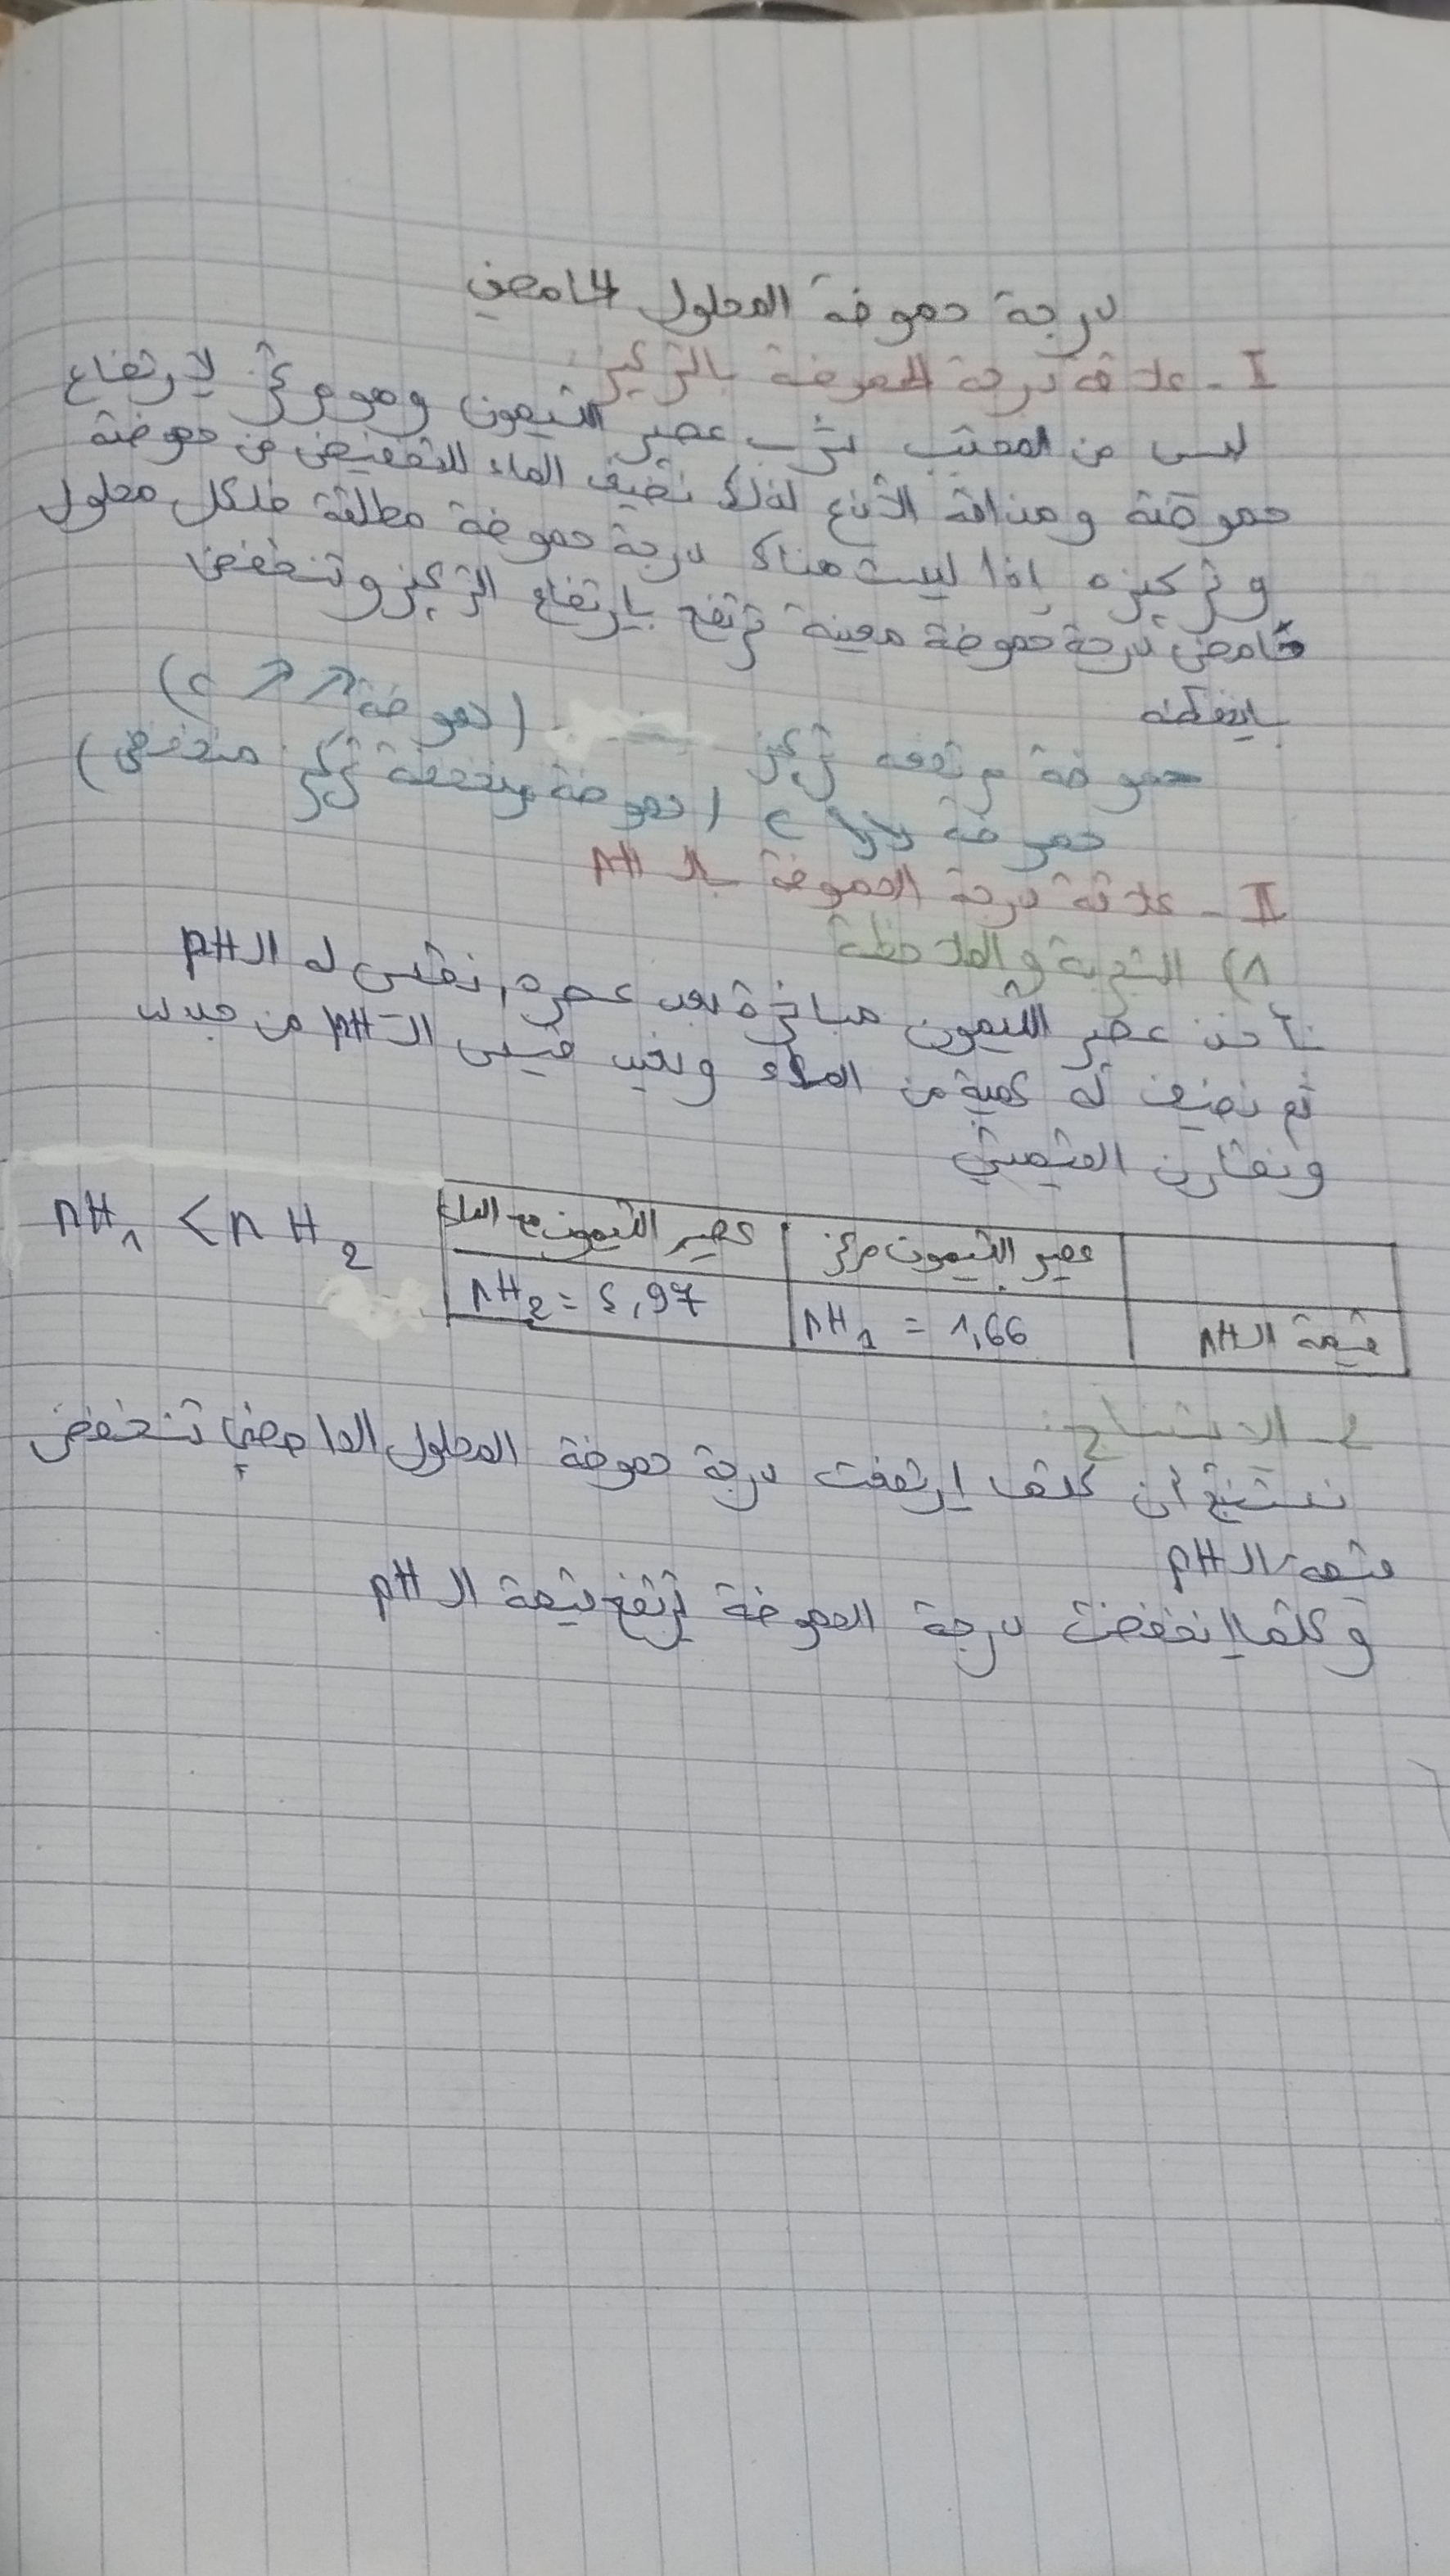 درجة حموضة المحلول الحامضي
I - علاقة درجة الحموضة بالتركيز:
ليس من المحبب شرب عصير الليمون وهو مركز لارتفاع
حموضته ومذاقه لذلك نضيف الماء للتخفيض من حموضة
وتركيزه إذا ليست هناك درجة حموضة مطلقة فلكل محلول
حامضي درجة حموضة معينة ترتفع بارتفاع التركيز وتنخفض
بانخفاضه
حموضة مرتفعة تركيز (حموضة ↗↗ c)
حموضة ↘↘ c (حموضة منخفضة تركيز منخفض)
II - علاقة درجة الحموضة بالـ pH
1) التجربة والملاحظة
نأخذ عصير الليمون مباشرة بعد عصره, نقيس له الـ pH
ثم نضيف له كمية من الماء ونعيد قيس الـ pH من جديد
ونقارن القيمتين
عصير الليمون مركز عصير الليمون مع الماء
قيمة الـ pH pH1 = 1,66 pH2 = 5,97
pH1 < pH2
2 - الاستنتاج:
نستنتج أن كلما إرتفعت درجة حموضة المحلول الحامضي تنخفض
قيمة الـ pH
وكلما إنخفضت درجة الحموضة ترتفع قيمة الـ pH